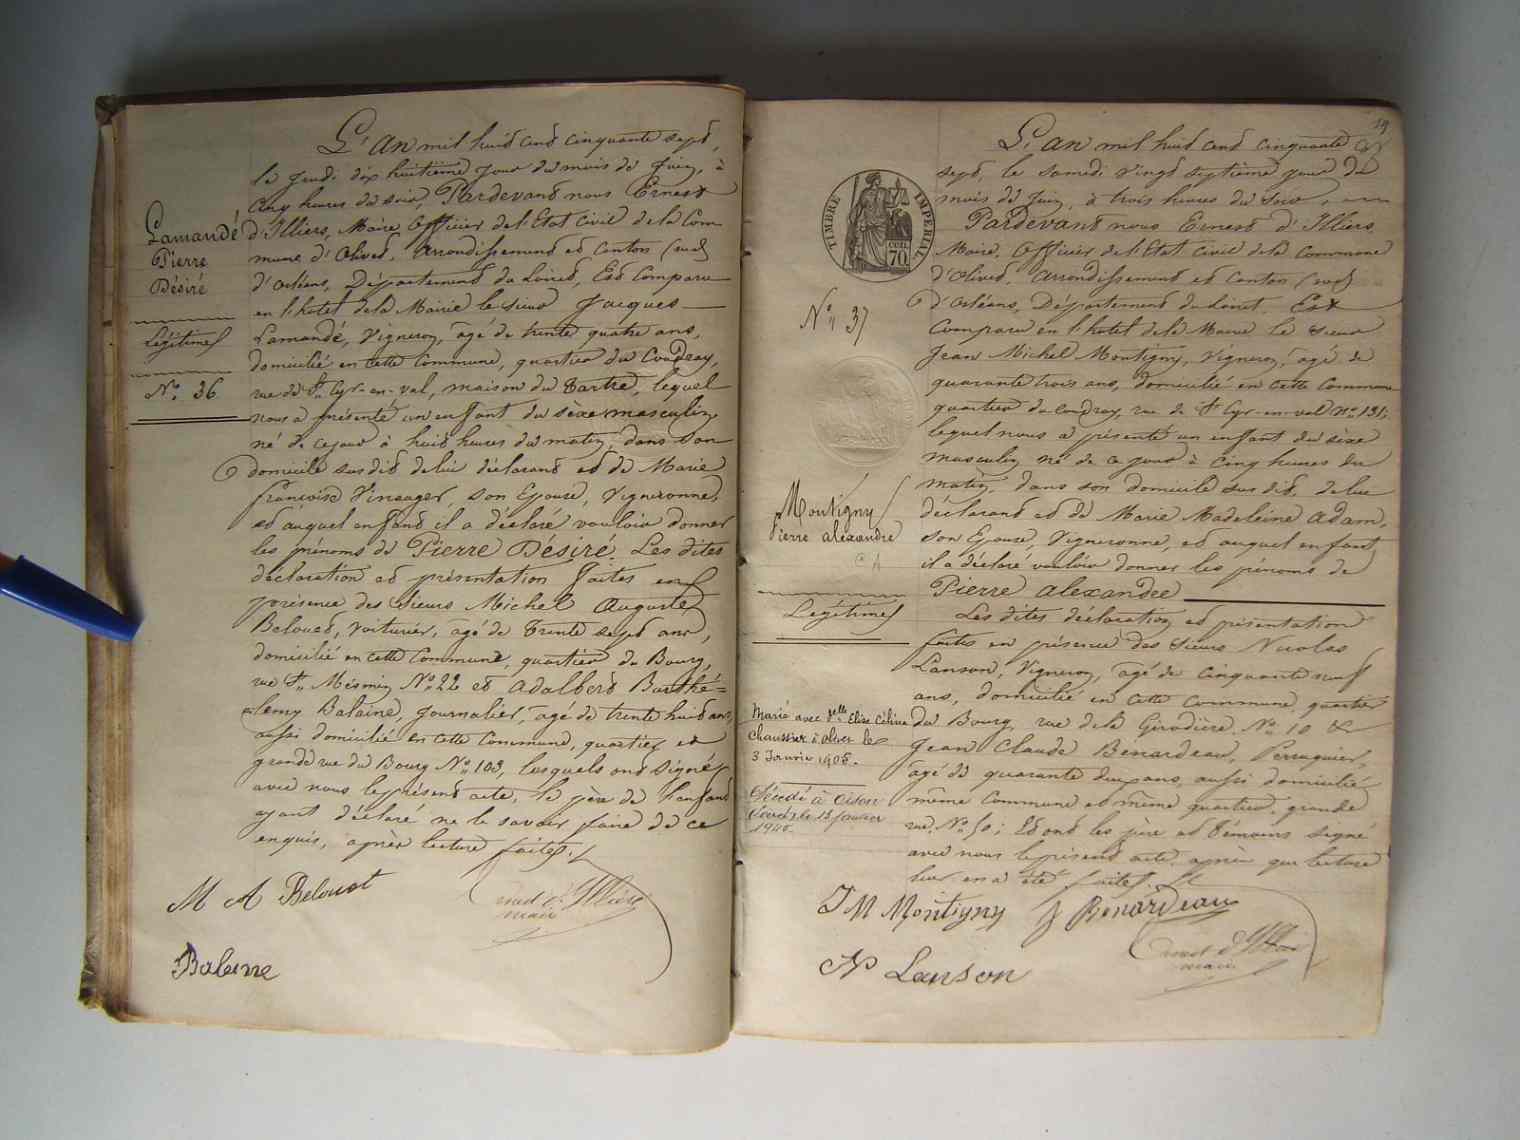 L'An mil huit cent cinquante sept,
le jeudi dix huitième jour du mois de Juin, à
cinq heures du soir, Pardevant nous Ernest
d'Illiers, Maire, Officier de l'Etat Civil de la Com
mune d'Olivet, Arrondissement et Canton (sud)
d'Orléans, Département du Loiret, Est Comparu
en l'hotel de la Mairie le sieur Jacques
Lamandé, Vigneron, âgé de trente quatre ans,
domicilié en cette Commune, quartier du Coudray,
rue de St Cyr-en-val, maison du Tartre, lequel
nous a présenté un enfant du sèxe masculin,
né de ce jour à huit heures du matin, dans son
domicile susdit de lui déclarant et de Marie
françoise Vinauger, son Epouse, Vigneronne,
et auquel enfant il a déclaré vouloir donner
les prénoms de Pierre Désiré. Les dites
déclaration et présentation faites en
présence des Sieurs Michel Auguste
Belouet, voiturier, âgé de trente sept ans,
domicilié en cette Commune, quartier du Bourg,
rue St Mesmin No 22 et Adalbert Barthé=
lemy Balaine, Journalier, âgé de trente huit ans,
aussi domicilié en cette Commune, quartier et
grande rue du Bourg No 103, lesquels ont signé
avec nous le présent acte, le père de l'enfant
ayant déclaré ne le savoir faire de ce
enquis, après lecture faite.
Lamandé
Pierre
Désiré
Légitime
No 36
M A Belouet
Ernest d'Illiers
maire
Balaine
19
L'An mil huit cent cinquante
sept, le samedi vingt septième jour du
mois de Juin, à trois heures du soir,
Pardevant nous Ernest d'Illiers
Maire, Officier de l'Etat Civil de la Commune
d'Olivet, Arrondissement et Canton (sud)
d'Orléans, Département du Loiret, Est
Comparu en l'hotel de la Mairie le sieur
Jean Michel Montigny, Vigneron, âgé de
quarante trois ans, domicilié en cette Commune
quartier du Coudray, rue de St Cyr-en-val no 131,
lequel nous a présenté un enfant du sèxe
masculin, né de ce jour à cinq heures du
matin, dans son domicile susdit, de lui
déclarant et de Marie Madeleine Adam,
son Epouse, Vigneronne, et auquel enfant
il a déclaré vouloir donner les prénoms de
Pierre Alexandre
Les dites déclaration et présentation
faites en présence des Sieurs Nicolas
Lanson, Vigneron, âgé de cinquante neuf
ans, domicilié en cette Commune, quartier
du Bourg, rue de la Girodière, No 10 &
Jean Claude Benardeau, Perruquier,
âgé de quarante deux ans, aussi domicilié
même Commune et même quartier, grande
rue, No 50; Et ont les père et témoins signé
avec nous le présent acte, après que lecture
leur en a été faite.
TIMBRE IMPERIAL
70
No 37
Montigny
Pierre alexandre
Légitime
Marié avec Delle Elise Céline
Chaussier à Olivet le
3 Janvier 1905.
Décédé à
Loiret le 15 janvier
1940
J M Montigny J Benardeau
N Lanson
Ernest d'Illiers
maire